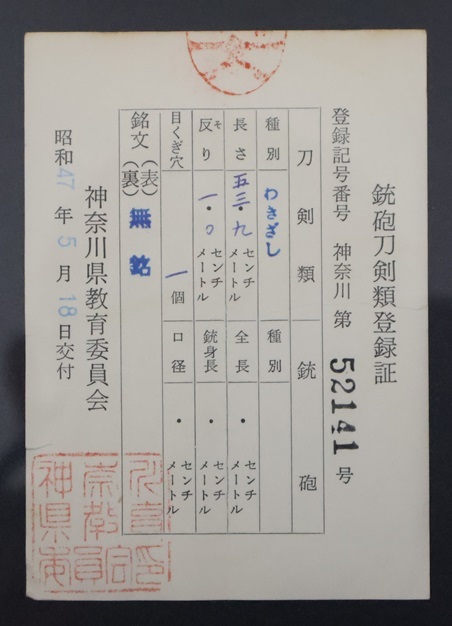 銃砲刀剣類登録証
登録記号番号 神奈川 第 52141 号
刀剣類 銃砲
種別 わきざし 種別
長さ 五三・九 センチメートル 全長 ・ センチメートル
反り そ 一・〇 センチメートル 銃身長 ・ センチメートル
目くぎ穴 一個 口径 ・ センチメートル
銘文 (表) 無銘
(裏)
神奈川県教育委員会
昭和47年5月18日交付